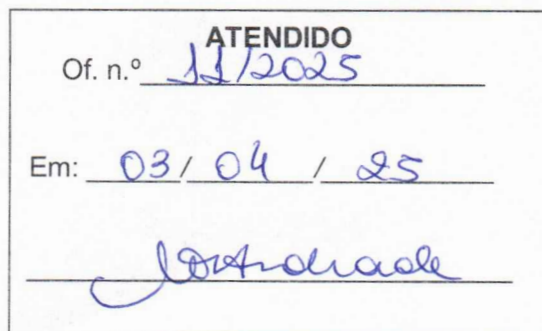 ATENDIDO
Of. n.º 11/2025
Em: 03 / 04 / 25